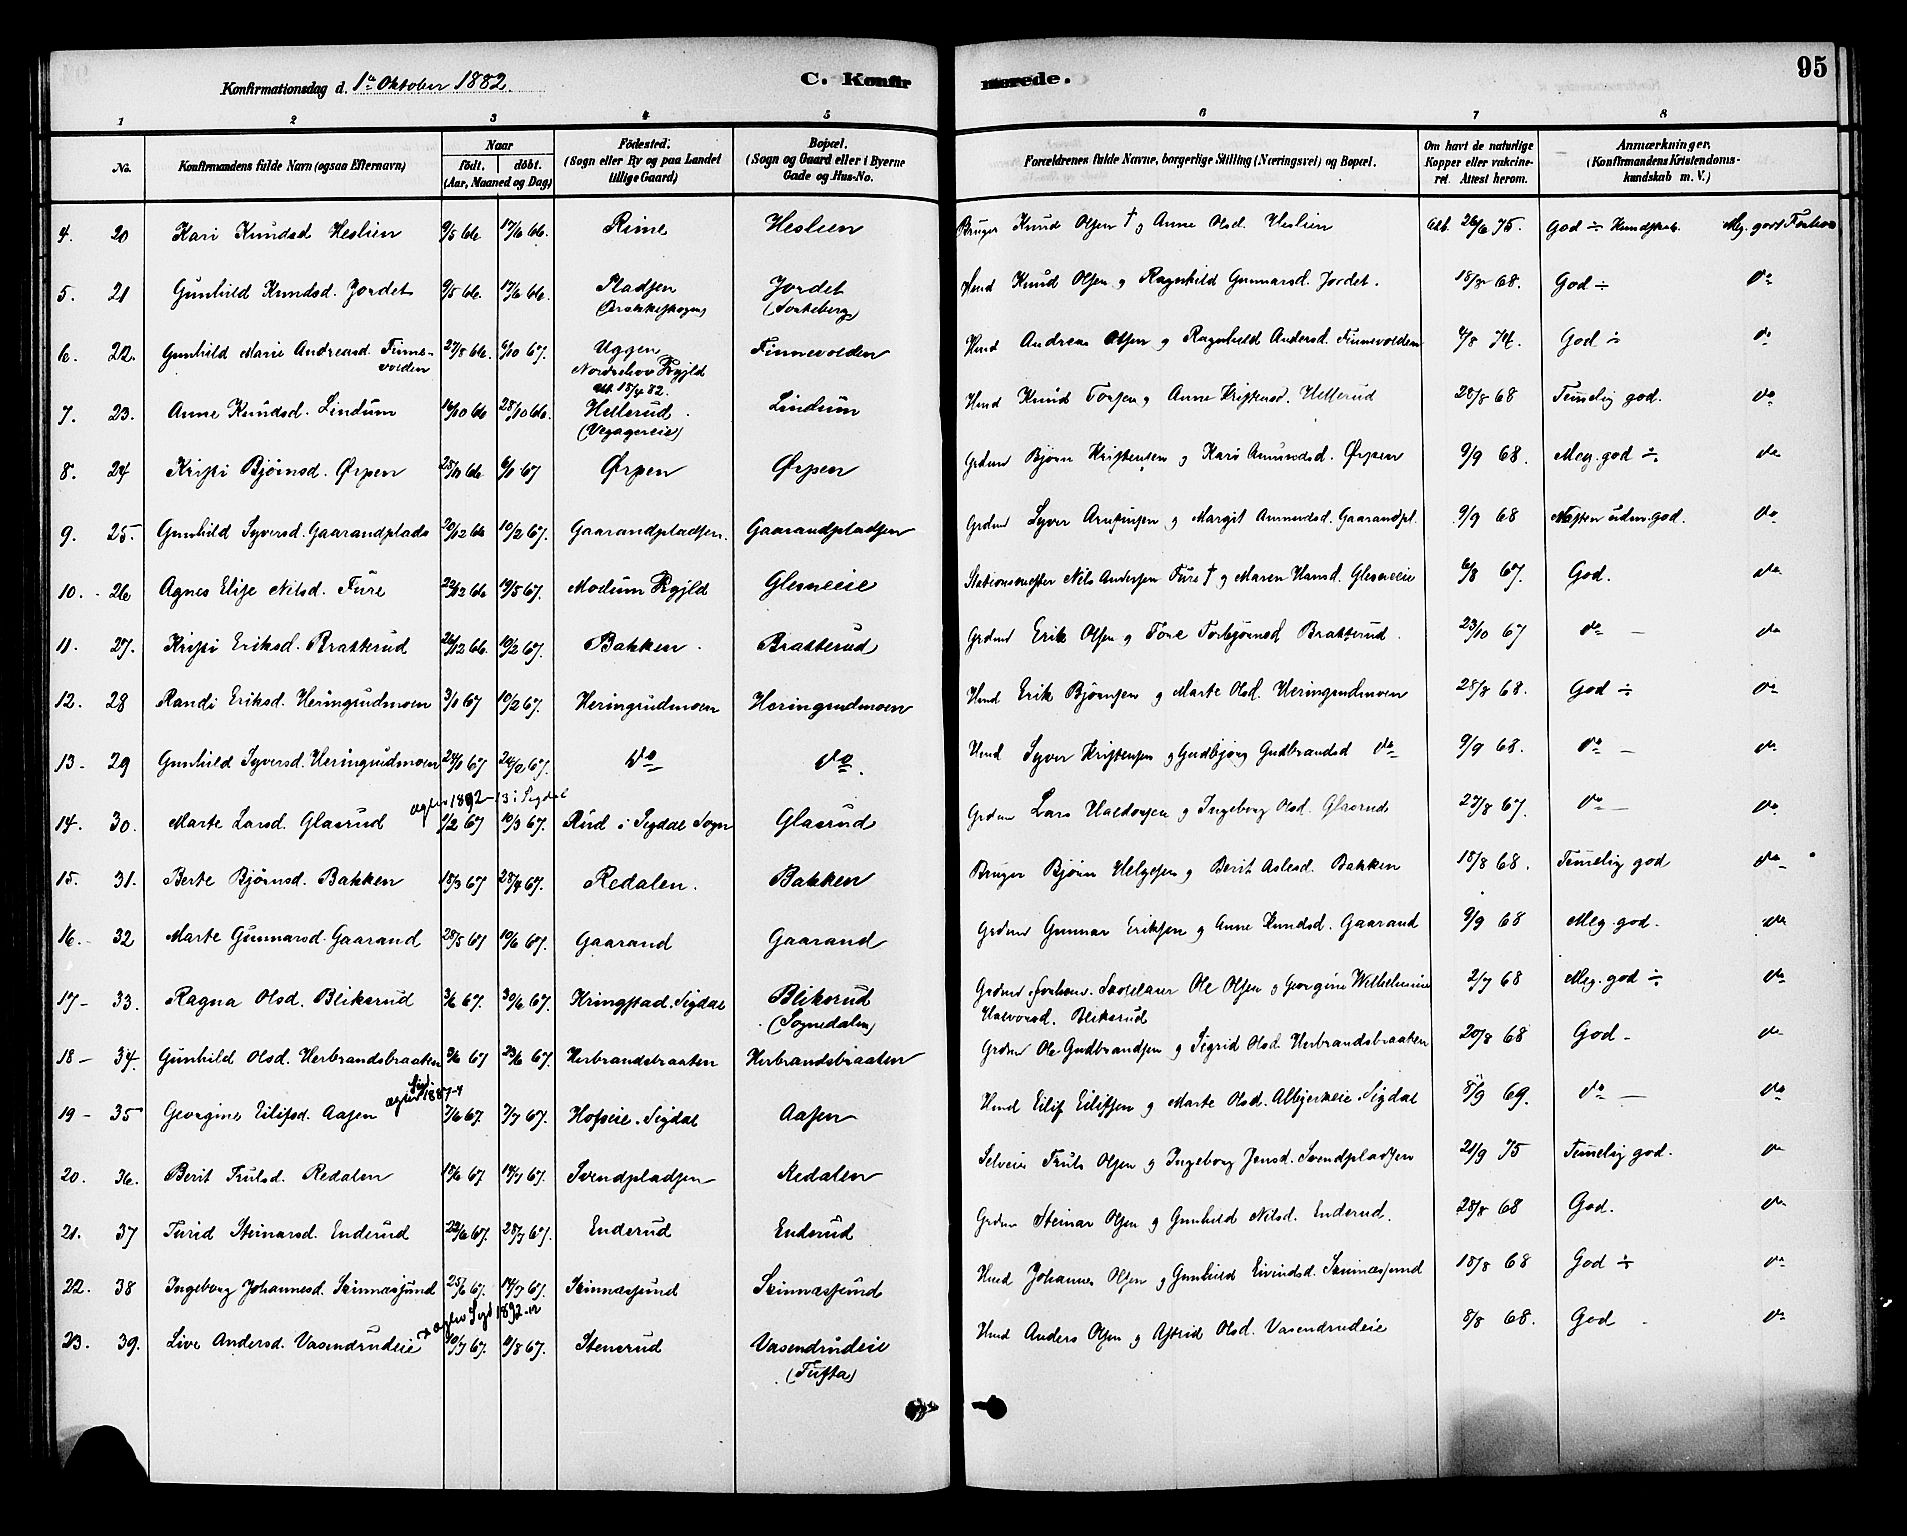 Konfirmationsdag d. 1ste Oktober 1882.
C. Konfirmerede.
95
1 2 3 4 5 6 7 8
No. Konfirmandens fulde Navn (ogsaa Efternavn) Naar født. døbt. (Aar, Maaned og Dag) Fødested. (Sogn eller By og paa Landet tillige Gaard) Bopæl. (Sogn og Gaard eller i Byerne Gade og Hus-No. Forældrenes fulde Navne, borgerlige Stilling (Næringsvei) og Bopæl. Om havt de naturlige Kopper eller vakcineret. Attest herom. Anmærkninger. (Konfirmandens Kristendomskundskab m. V.)
4. 20 Kari Knudsd Heslien 9/5 66 17/6 66. Rime Heslien Bruger Knud Olsen † og Anne Olsd. Heslien Att. 26/6 75. God ÷ Kundskab. Meg. god Forhold
5. 21 Gunhild Knudsd. Jordet 9/5 66. 17/6 66. Pladsen Jordet Hmd Knud Olsen og Ragnhild Gunnarsd. Jordet. 18/8 68. God ÷ do
6. 22. Gunhild Marie Andreasd. Finnevolden 27/8 66. 6/10 67. Uggen Nordrehov Prgjld att 15/4 82. Finnevolden Hmd Andreas Olsen og Ragnhild Andersd. Finnevolden 4/8 74. God ÷ do
7. 23. Anne Knudsd. Lindum 16/10 66 28/10 66. Hellerud. (Vegagereie) Lindum Hmd Knud Torsen og Anne Kristensd. Hellerud 28/8 68 Temelig god. do
8. 24 Kristi Bjørnsd. Ørpen 28/10 66 6/1 67 Ørpen Ørpen Grdmd Bjørn Kristensen og Kari Amundsd. Ørpen 9/9 68. Meg. god ÷ do
9. 25- Gunhild Syversd. Gaarandplads 20/12 66 10/2 67. Gaarandpladsen. Gaarandpladsen Grdmd Syver Arnesen og Margit Ammundsd. Gaarandpl. 9/9 68 Næsten udm. god. do
10. 26 Agnes Elise Nilsd. Fure 22/12 66 19/5 67. Modum Prgjld Glesneeie Stationsmester Nils Andersen Fure † og Maren Hansd. Glesneeie 6/8 67. God. do
11. 27. Kristi Eriksd. Braaterud 26/12 66. 10/2 67. Bakken. Braaterud Grdmd Erik Olsen og Tore Torbjørnsd Braaterud. 23/10 67 do — do
12. 28 Randi Eriksd. Heringrudmoen 3/1 67 10/2 67. Heringrudmoen Heringrudmoen Hmd Erik Bjørnsen og Marte Olsd. Heringrudmoen 28/8 68. God ÷ do
13- 29 Gunhild Syversd. Heringrudmoen 24/1 67 24/2 67. do do. Hmd Syver Kristensen og Gudbjørg Gudbrandsd do 9/9 68. do — do
1892-13 i Sigdal
14. 30. Marte Larsd. Glasrud 1/2 67 10/3 67. Rud i Sigdal Sogn Glasrud Grdmd Lars Halvorsen og Ingeborg Olsd. Glasrud 27/8 67. do — do
15. 31. Berte Bjørnsd. Bakken 18/3 67 28/4 67. Redalen. Bakken Bruger Bjørn Helgesen og Berit Aslesd. Bakken 18/8 68. Temelig god do
16. 32 Marte Gunnarsd. Gaarand 28/5 67 10/6 67. Gaarand Gaarand Grdmd Gunnar Eriksen og Anne Knudsd. Gaarand 9/9 68 Meg. god. do
17- 33. Ragna Olsd. Bliksrud 3/6 67. 30/6 67. Kringstad. Sigdal Bliksrud (Sognedalen) Grdmd Ole Olsen og Georgine Wilhelmine Halvorsd. Bliksrud 2/7 68 Meg. god ÷ do
18- 34. Gunhild Olsd. Herbrandsbraaten 3/6 67 23/6 67. Herbrandsbraaten Herbrandsbraaten Grdmd Ole Gudbrandsen og Sigrid Olsd Herbrandsbraaten 20/8 68 God - do
19- 35 Georgine Eilifsd. Aasen 7/6 67. 7/7 67. Hofseie. Sigdal Aasen Hmd Eilif Eilifsen og Marte Olsd. Albjerkeie. Sigdal 8/9 69. do — do
20. 36. Berit Trulsd. Redalen 15/6 67 14/7 67. Svendpladsen Redalen Selveier Truls Olsen og Ingeborg Jensd. Svendpladsen 21/9 75 Temelig god. do
21. 37 Turid Steinarsd. Enderud 22/6 67. 28/7 67. Enderud Enderud Grdmd Steinar Olsen og Gunhild Nilsd. Enderud. 28/8 68 God. do
22. 38 Ingeborg Johannesd. Skinnæsjund 25/6 67. 14/7 67. Skinnæsjund Skinnæsjund Hmd Johannes Olsen og Gunhild Eivindsd. Skinnæsjund 18/8 68 God ÷ do
23. 39. Live Andersd. Vasendrudeie 10/7 67. 4/8 67. Stenerud Vasendrudeie (Tufta) Hmd Anders Olsen og Astrid Olsd. Vasendrudeie 8/8 68. God - do